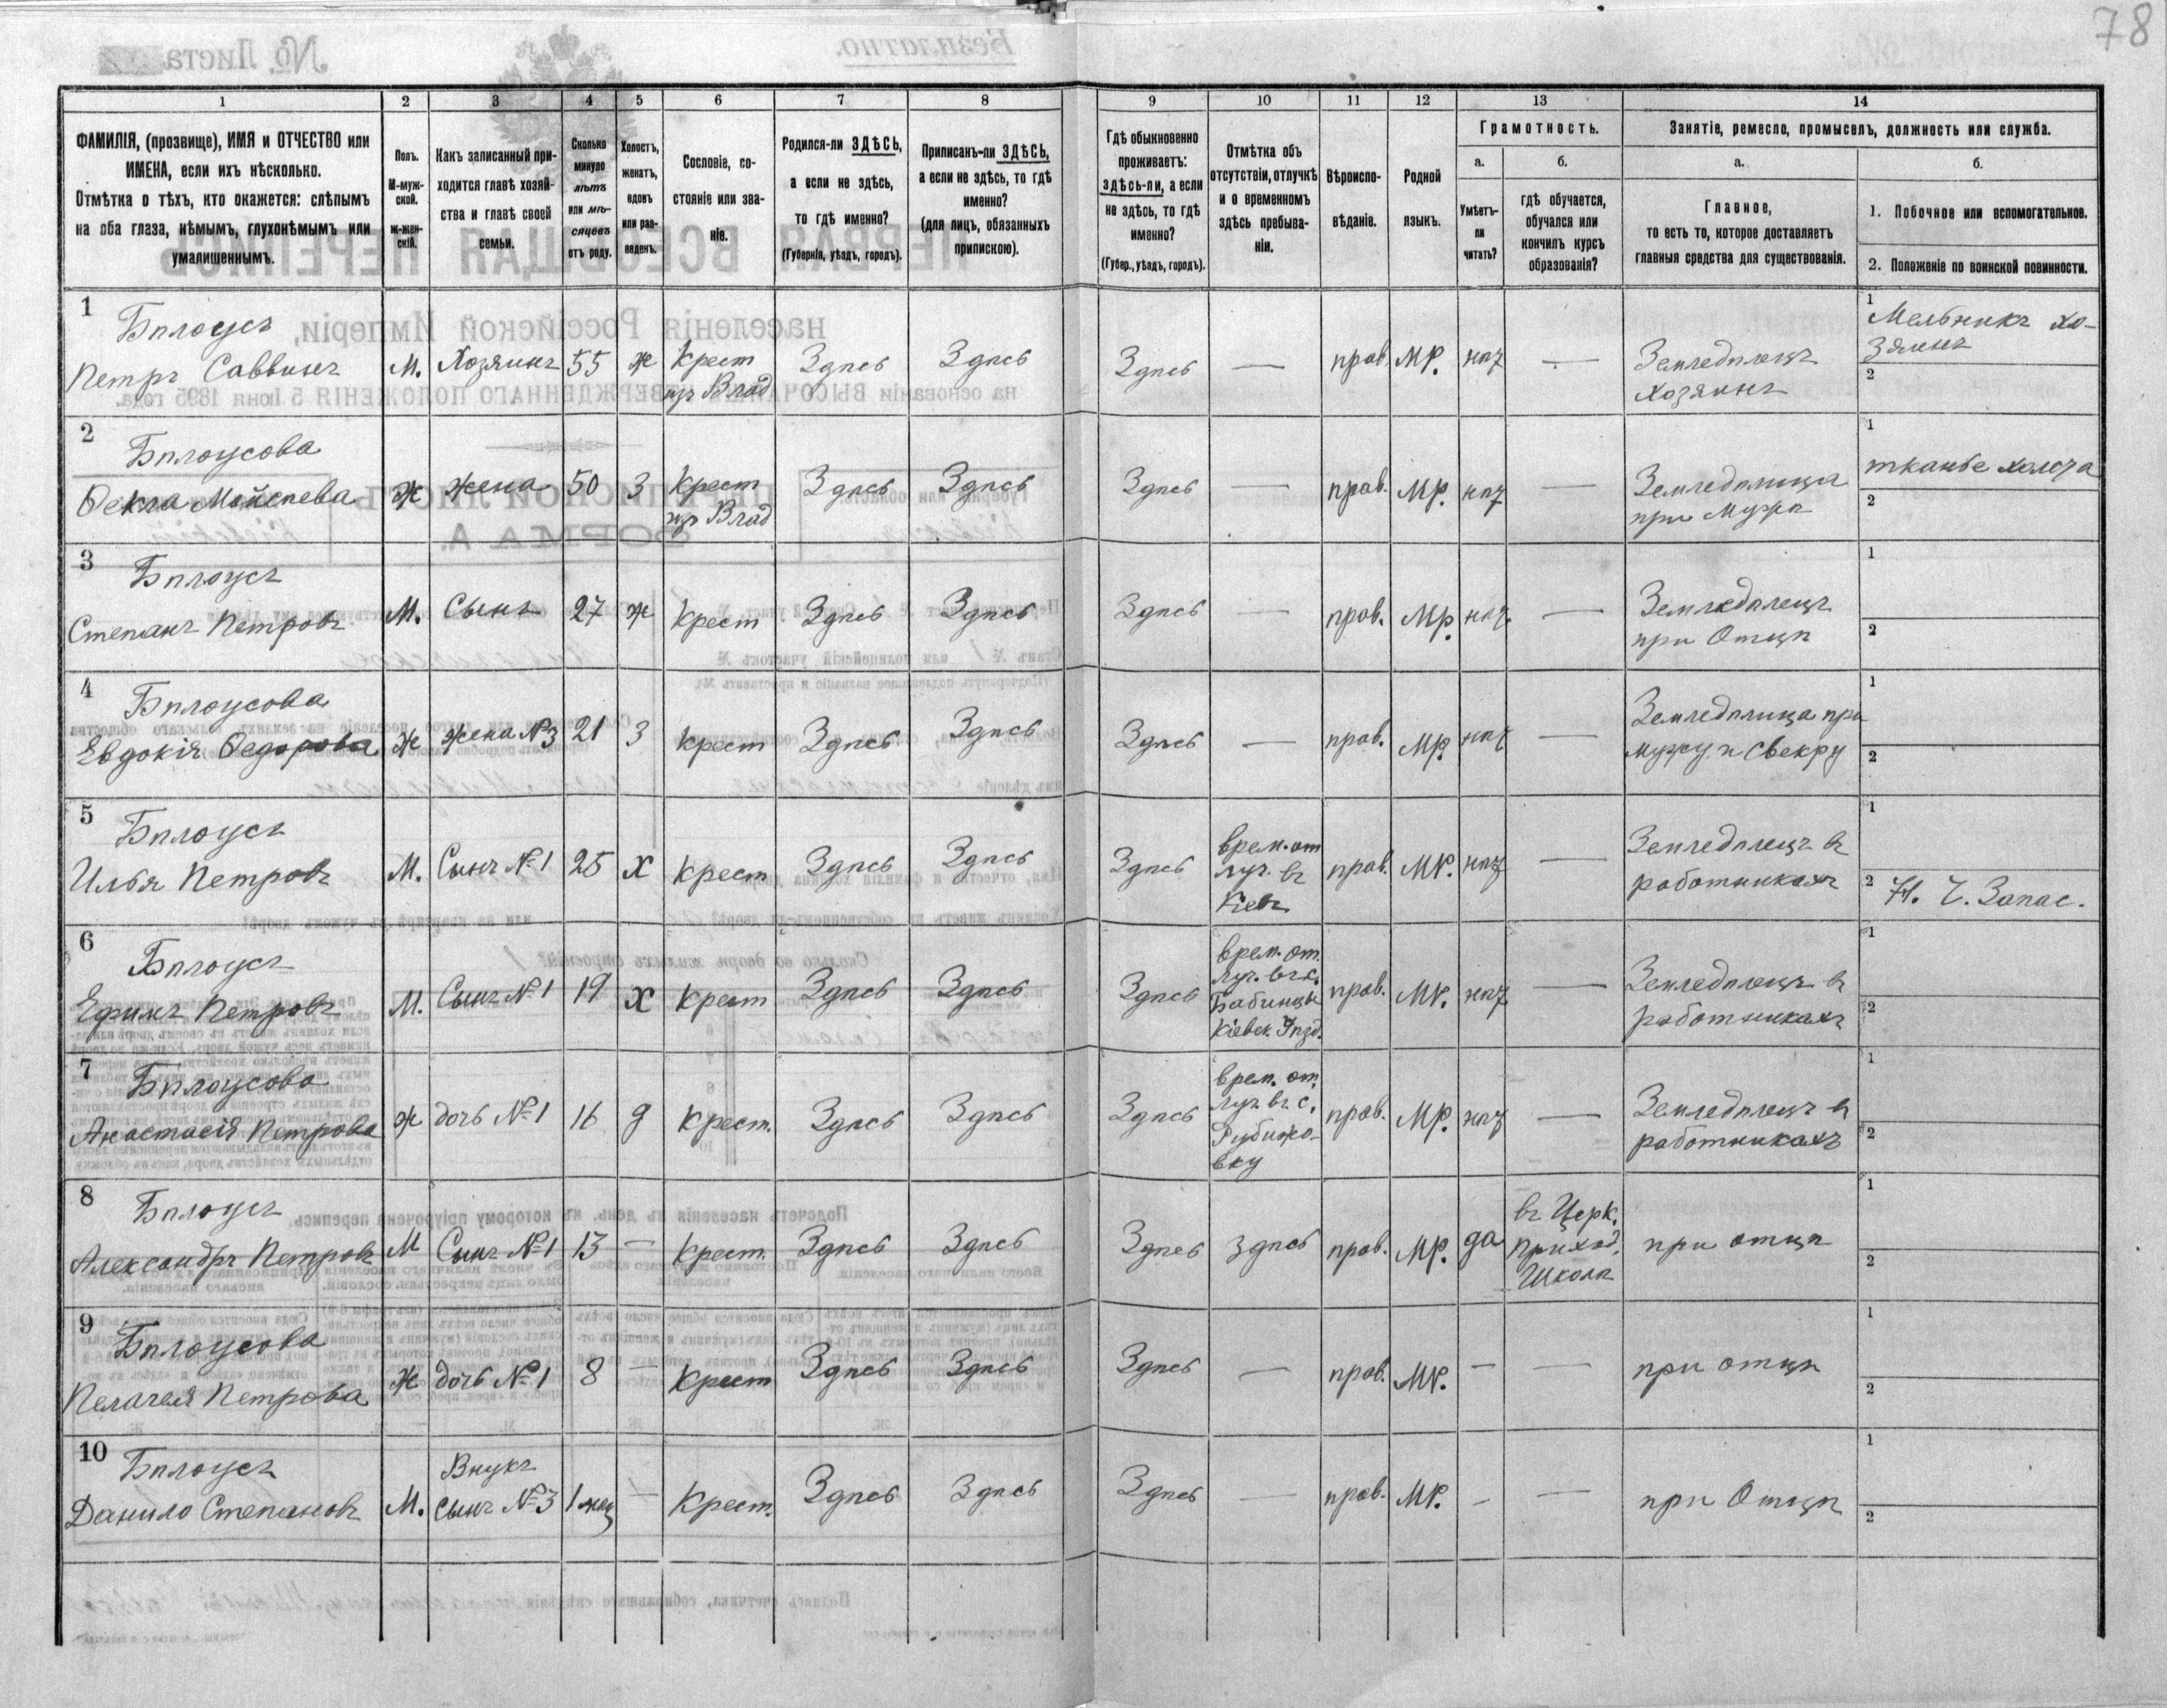 78
№ Листа
Безплатно.
1 2 3 4 5 6 7 8 9 10 11 12 13 14
ФАМИЛІЯ, (прозвище), ИМЯ и ОТЧЕСТВО или
ИМЕНА, если ихъ нѣсколько.
Отмѣтка о тѣхъ, кто окажется: слѣпымъ
на оба глаза, нѣмымъ, глухонѣмымъ или
умалишеннымъ.
Полъ.
М-муж-
ской.
ж-жен-
скій.
Какъ записанный при-
ходится главѣ хозяй-
ства и главѣ своей
семьи.
Сколько
минуло
лѣтъ
или мѣ-
сяцевъ
отъ роду.
Холостъ,
женатъ,
вдовъ
или раз-
веденъ.
Сословіе, со-
стояніе или зва-
ніе.
Родился-ли ЗДѢСЬ,
а если не здѣсь,
то гдѣ именно?
(Губернія, уѣздъ, городъ).
Приписанъ-ли ЗДѢСЬ,
а если не здѣсь, то гдѣ
именно?
(для лицъ, обязанныхъ
припискою).
Гдѣ обыкновенно
проживаетъ:
здѣсь-ли, а если
не здѣсь, то гдѣ
именно?
(Губер., уѣздъ, городъ).
Отмѣтка объ
отсутствіи, отлучкѣ
и о временномъ
здѣсь пребыва-
ніи.
Вѣроиспо-
вѣданіе.
Родной
языкъ.
Грамотность.
а.
Умѣетъ-
ли
читать?
б.
гдѣ обучается,
обучался или
кончилъ курсъ
образованія?
Занятіе, ремесло, промыселъ, должность или служба.
а.
Главное,
то есть то, которое доставляетъ
главныя средства для существованія.
б.
1. Побочное или вспомогательное.
2. Положеніе по воинской повинности.
1 Бѣлоусъ
Петръ Саввинъ М. Хозяинъ 55 ж Крест
из Влад Здѣсь Здѣсь Здѣсь — прав. МР. нѣт — Земледѣлецъ
хозяинъ 1 Мельникъ хо-
зяинъ
2
2 Бѣлоусова
Ѳекла Мойсеева Ж жена 50 З Крест
из Влад Здѣсь Здѣсь Здѣсь — прав. МР. нѣт — Земледѣлица
при Мужѣ 1 тканье холста
2
3 Бѣлоусъ
Степанъ Петровъ М. Сынъ 27 ж крест Здѣсь Здѣсь Здѣсь — прав. МР. нѣт. — Земледѣлецъ
при Отцѣ 1
2
4 Бѣлоусова
Евдокія Ѳедорова Ж жена №3 21 З крест Здѣсь Здѣсь Здѣсь — прав. МР. нѣт — Земледѣлица при
мужу и свекру 1
2
5 Бѣлоусъ
Илья Петровъ М. Сынъ №1 25 Х крест Здѣсь Здѣсь Здѣсь врем. от
луч. въ
Кіевъ прав. МР. нѣт — Земледѣлецъ въ
работникахъ 1
2 Запас.
6 Бѣлоусъ
Ефимъ Петровъ М. Сынъ №1 19 Х крест Здѣсь Здѣсь Здѣсь врем. от.
луч. въ с.
Бабинцы
Кіевск. Уѣзд. прав. МР. нѣт — Земледѣлецъ въ
работникахъ 1
2
7 Бѣлоусова
Анастасія Петрова ж дочь №1 16 д крест. Здѣсь Здѣсь Здѣсь врем. от.
луч. въ с.
Рубижо-
вку прав. МР. нѣт — Земледѣлецъ въ
работникахъ 1
2
8 Бѣлоусъ
Александръ Петровъ М Сынъ №1 13 — крест. Здѣсь Здѣсь Здѣсь здѣсь прав. МР. да въ Церк.
Приход.
Школѣ при отцѣ 1
2
9 Бѣлоусова
Пелагея Петрова Ж дочь №1 8 — Крест Здѣсь Здѣсь Здѣсь — прав. МР. — — при отцѣ 1
2
10 Бѣлоусъ
Данило Степановъ М. Внукъ
сынъ №3 1 мец — Крест. Здѣсь Здѣсь Здѣсь — прав. МР. — — при Отцѣ 1
2